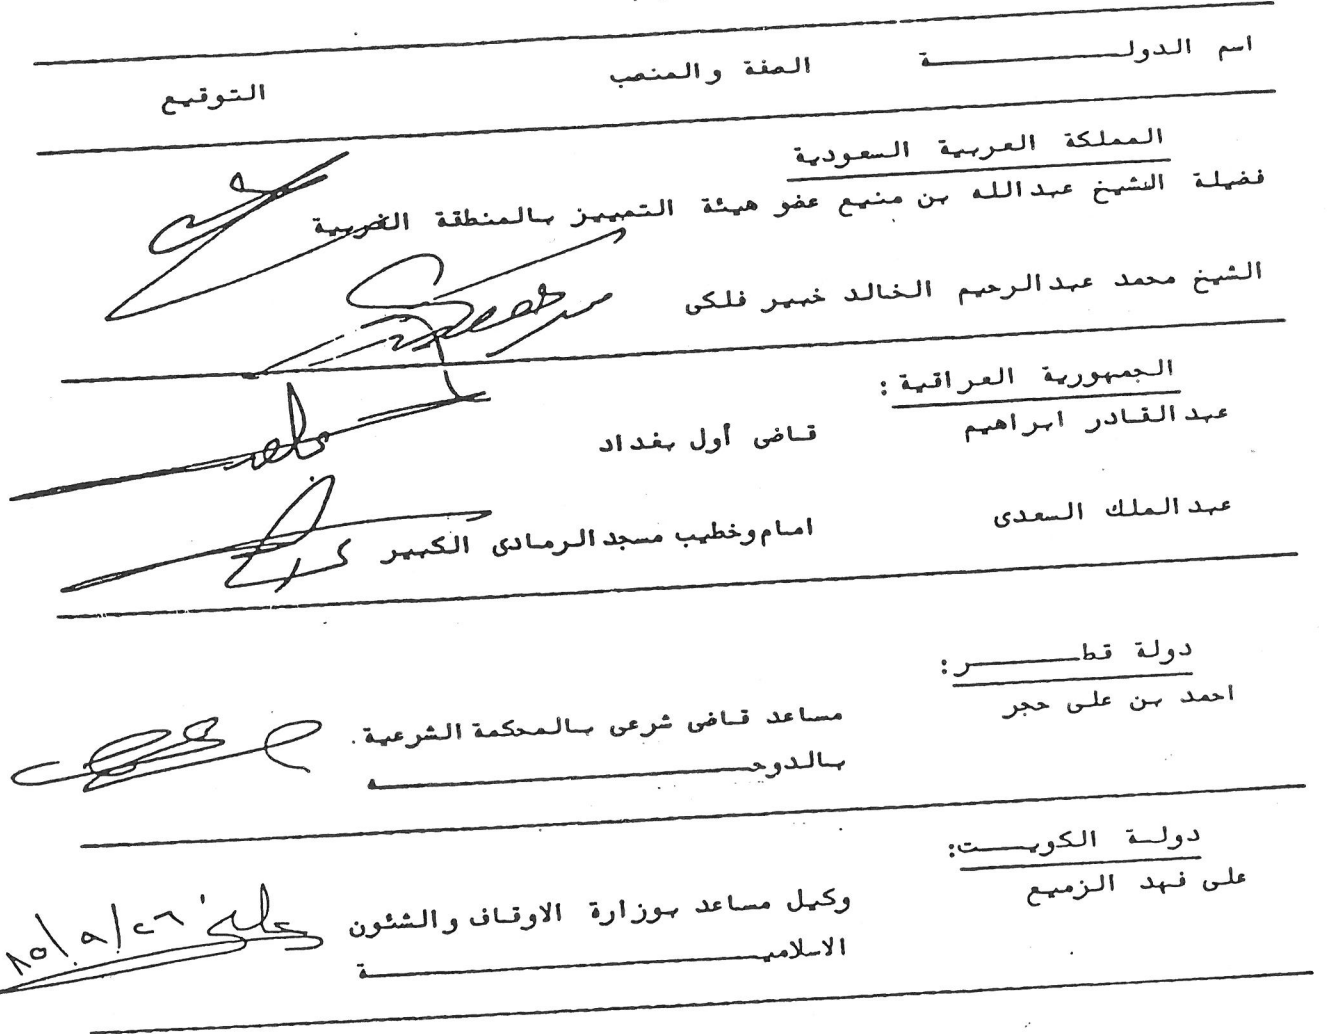 اسم الدولة الصفة والمنصب التوقيع
المملكة العربية السعودية
فضيلة الشيخ عبدالله بن منيع عضو هيئة التمييز بالمنطقة الغربية
الشيخ محمد عبدالرحيم الخالد خبير فلكى
الجمهورية العراقية :
عبدالقادر ابراهيم قاضى أول بغداد
عبدالملك السعدى امام وخطيب مسجد الرمادى الكبير
دولة قطر :
احمد بن على حجر مساعد قاضى شرعى بالمحكمة الشرعية .
بالدوحه
دولة الكويت:
على فهد الزميع وكيل مساعد بوزارة الاوقاف والشئون
الاسلامية
٨٥/٩/٢٦